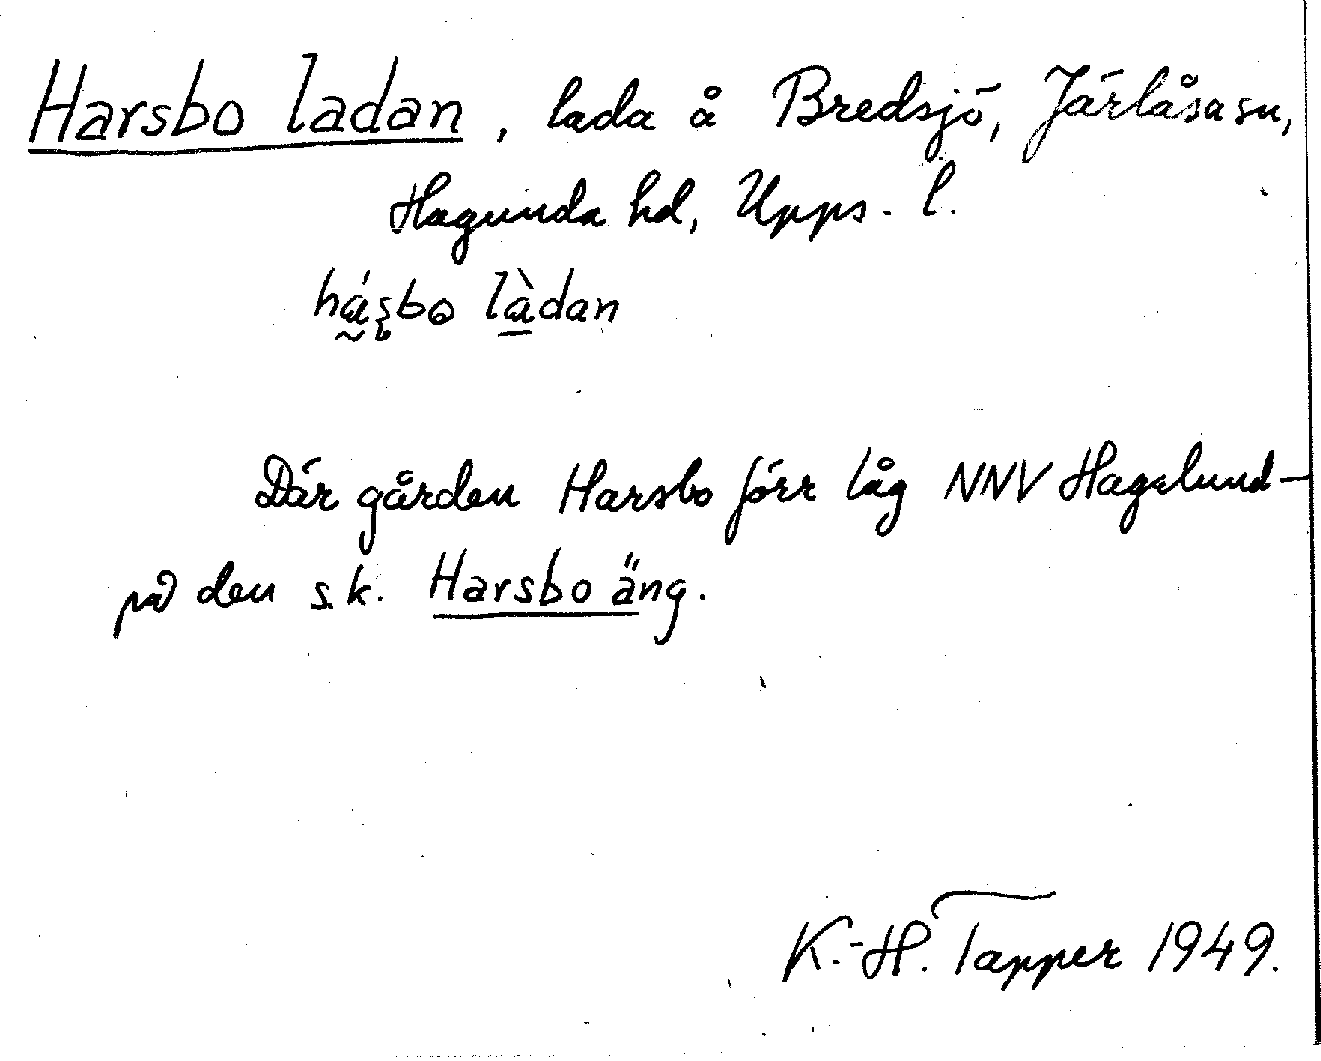 Harsbo ladan, lada å Bredsjö, Järlåsa sn,
Hagunda hd, Upps. l.
há̰ş̌bo là̱dan
Där gården Harsbo förr låg NNV Hagelund –
på den s.k. Harsbo äng.
K.-H. Tapper 1949.